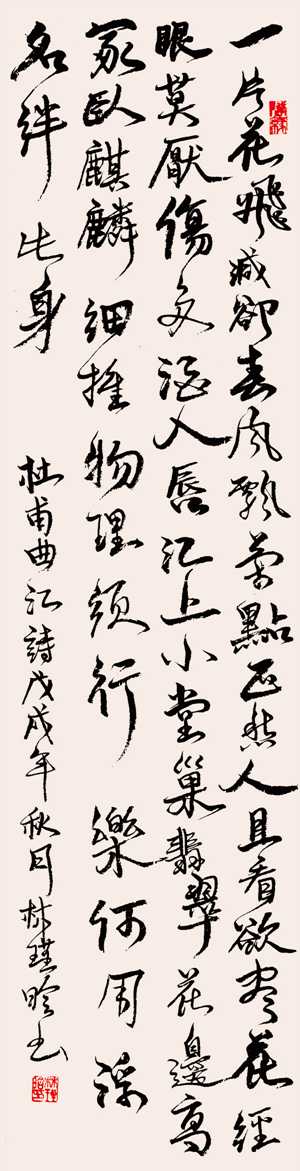 一片花飛減卻春風飄萬點正愁人且看欲尽花經
眼莫厭傷多酒入唇江上小堂巢翡翠花邊高
冢臥麒麟細推物理須行樂何用浮
名絆此身
杜甫曲江詩戊戌年秋月林瑾书